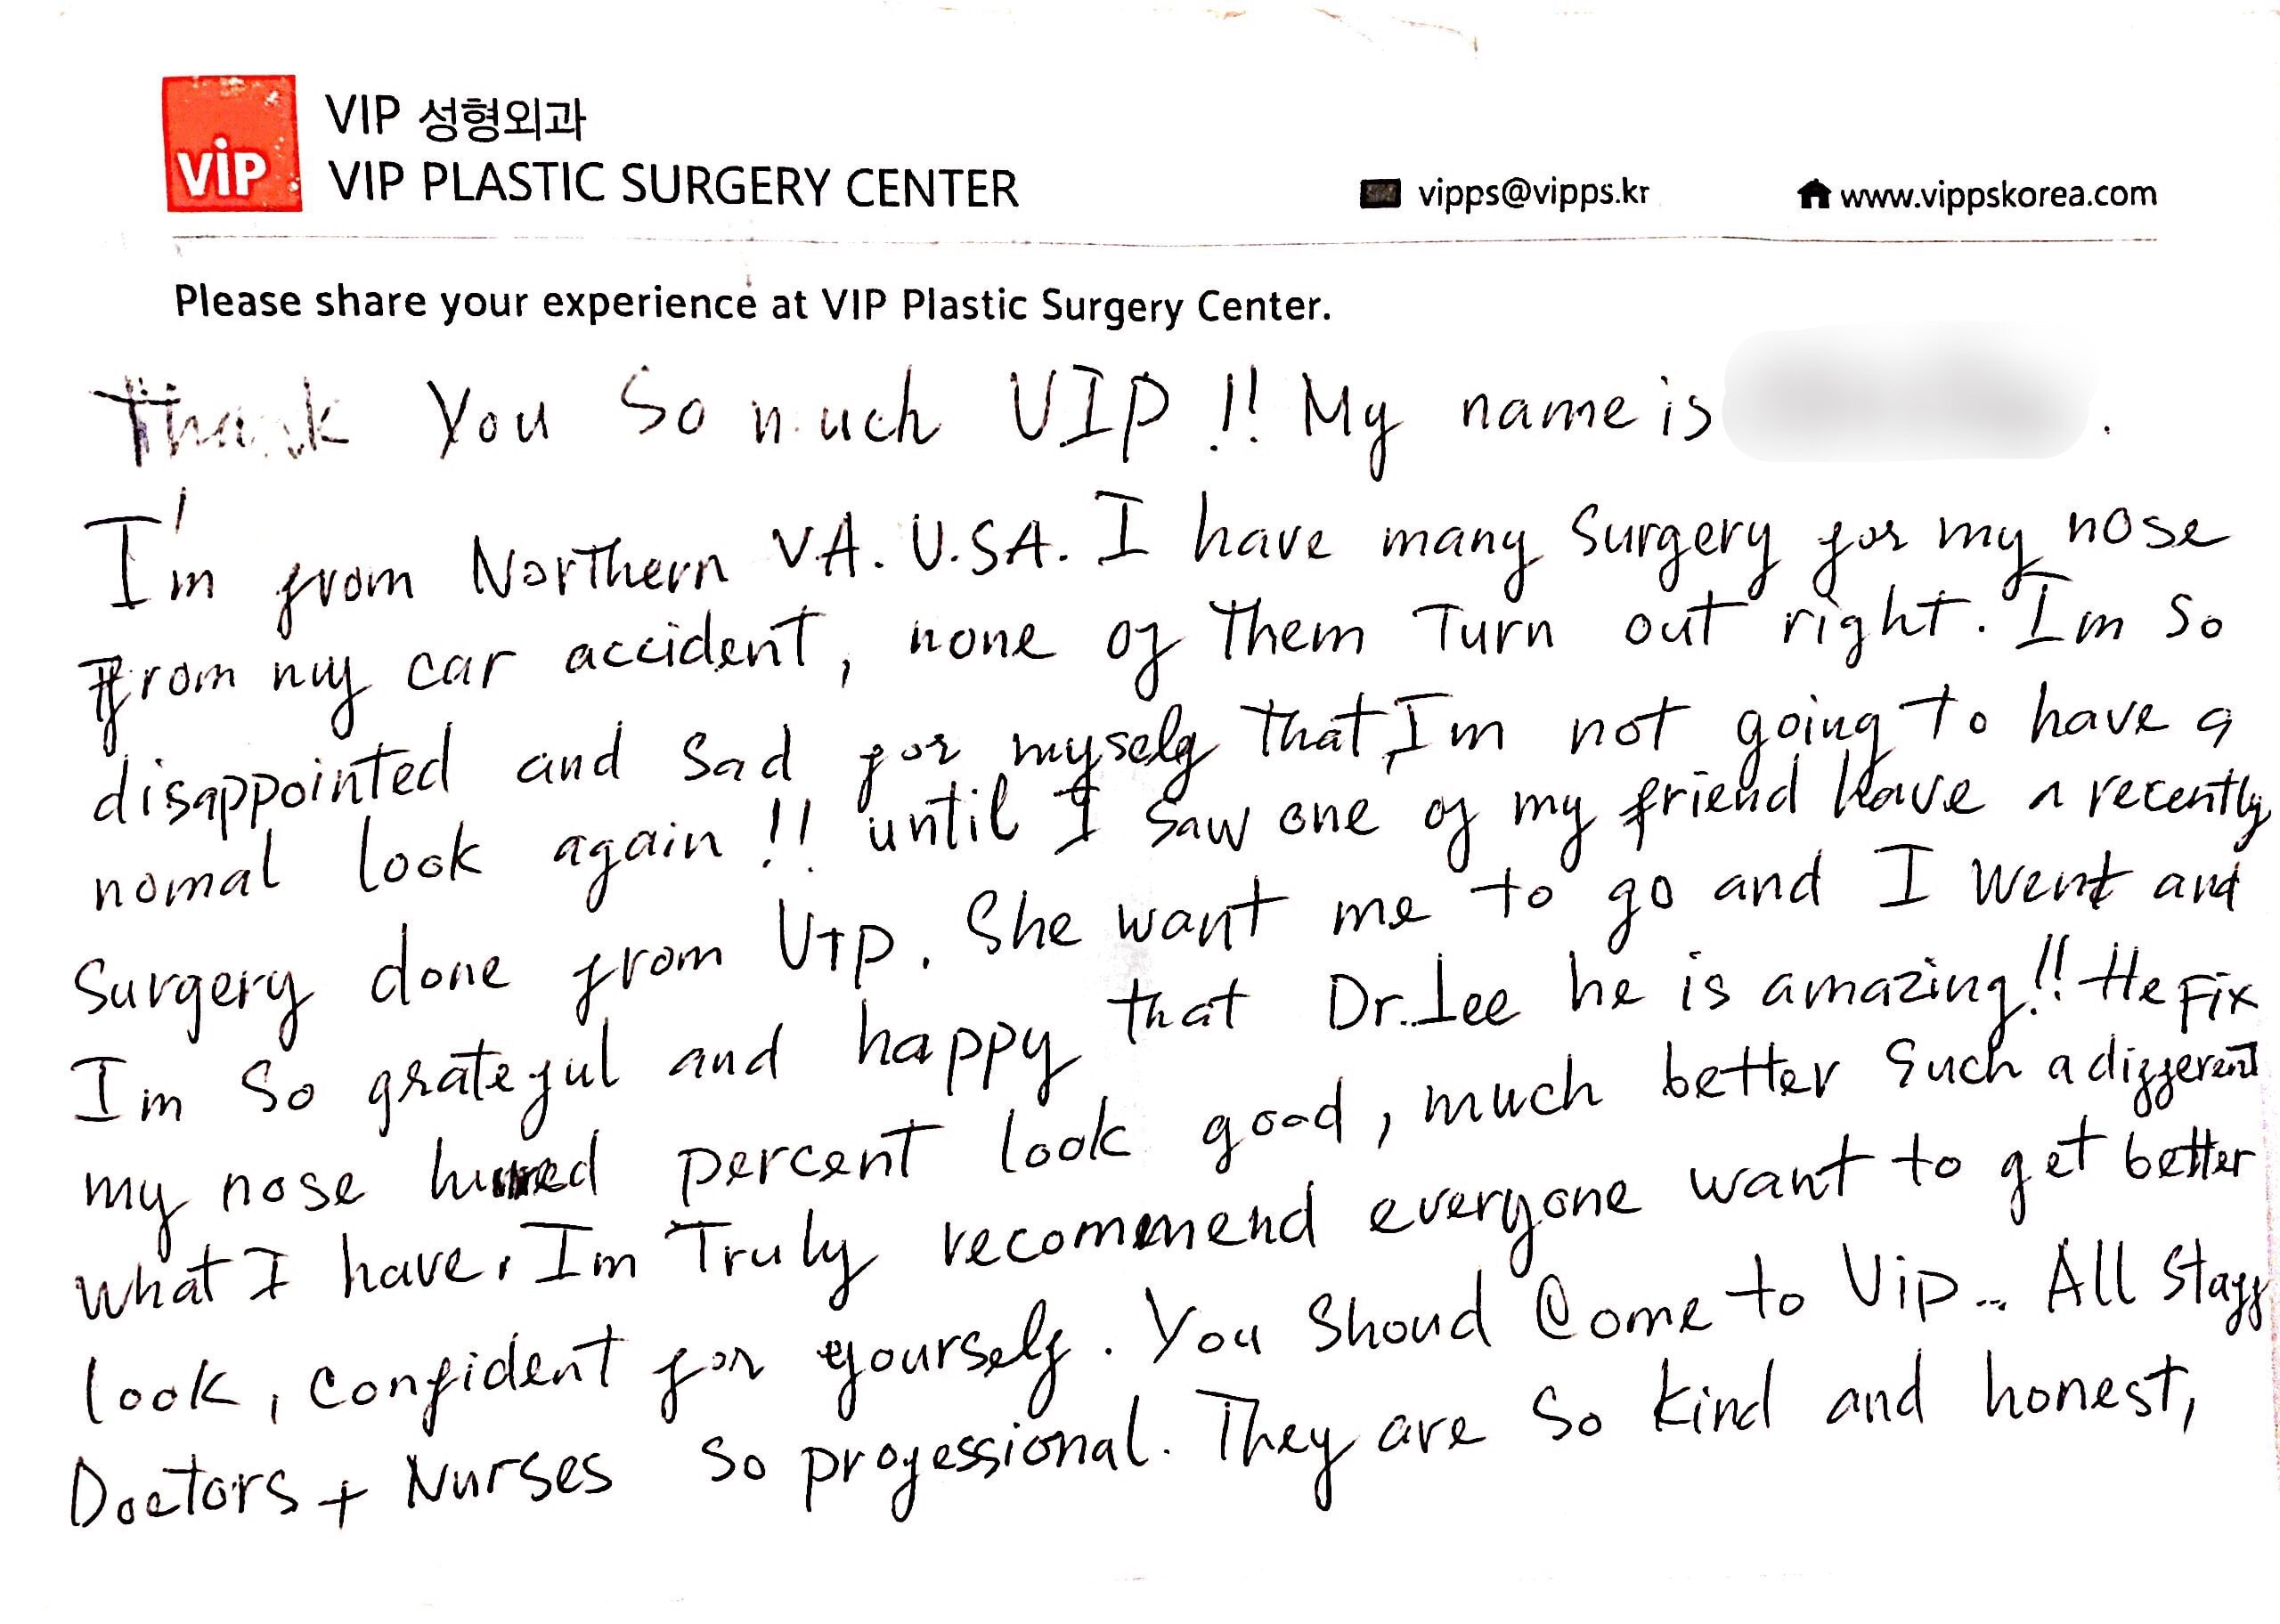 VIP 성형외과
ViP
VIP PLASTIC SURGERY CENTER
vipps@vipps.kr
www.vippskorea.com
Please share your experience at VIP Plastic Surgery Center.
Thank You So much VIP !! My name is .
I'm from Northern VA. U.S.A. I have many Surgery for my nose
From my car accident, none of Them Turn out right. Im So
disappointed and Sad for myself That Im not going To have a
nomal look again !! until I saw one of my friend have a recently
Surgery done from VIP. She want me to go and I Went and
Im So grateful and happy that Dr. Lee he is amazing!! He Fix
my nose percent look good, much better Such a different
what I have. Im Truly recommend everyone want to get better
look, Confident for yourself. You Shoud Come to Vip... All Staff
Doctors + Nurses So professional. They are So Kind and honest,